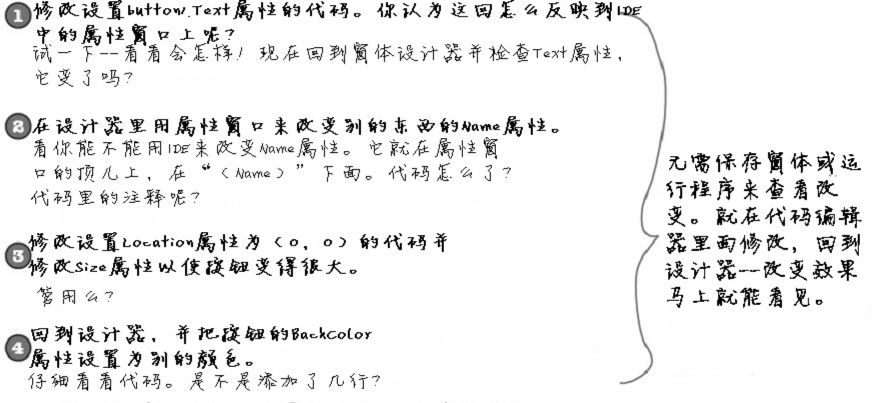 1 修改设置button.Text属性的代码。你认为这回怎么反映到IDE
中的属性窗口上呢?
试一下--看看会怎样! 现在回到窗体设计器并检查Text属性,
它变了吗?
2 在设计器里用属性窗口来改变别的东西的Name属性。
看你能不能用IDE来改变Name属性。它就在属性窗
口的顶儿上, 在“(Name)”下面。代码怎么了?
代码里的注释呢?
3 修改设置Location属性为(0, 0)的代码并
修改Size属性以使按钮变得很大。
管用么?
4 回到设计器, 并把按钮的BackColor
属性设置为别的颜色。
仔细看看代码。是不是添加了几行?
无需保存窗体或运
行程序来查看改
变。就在代码编辑
器里面修改, 回到
设计器--改变效果
马上就能看见。